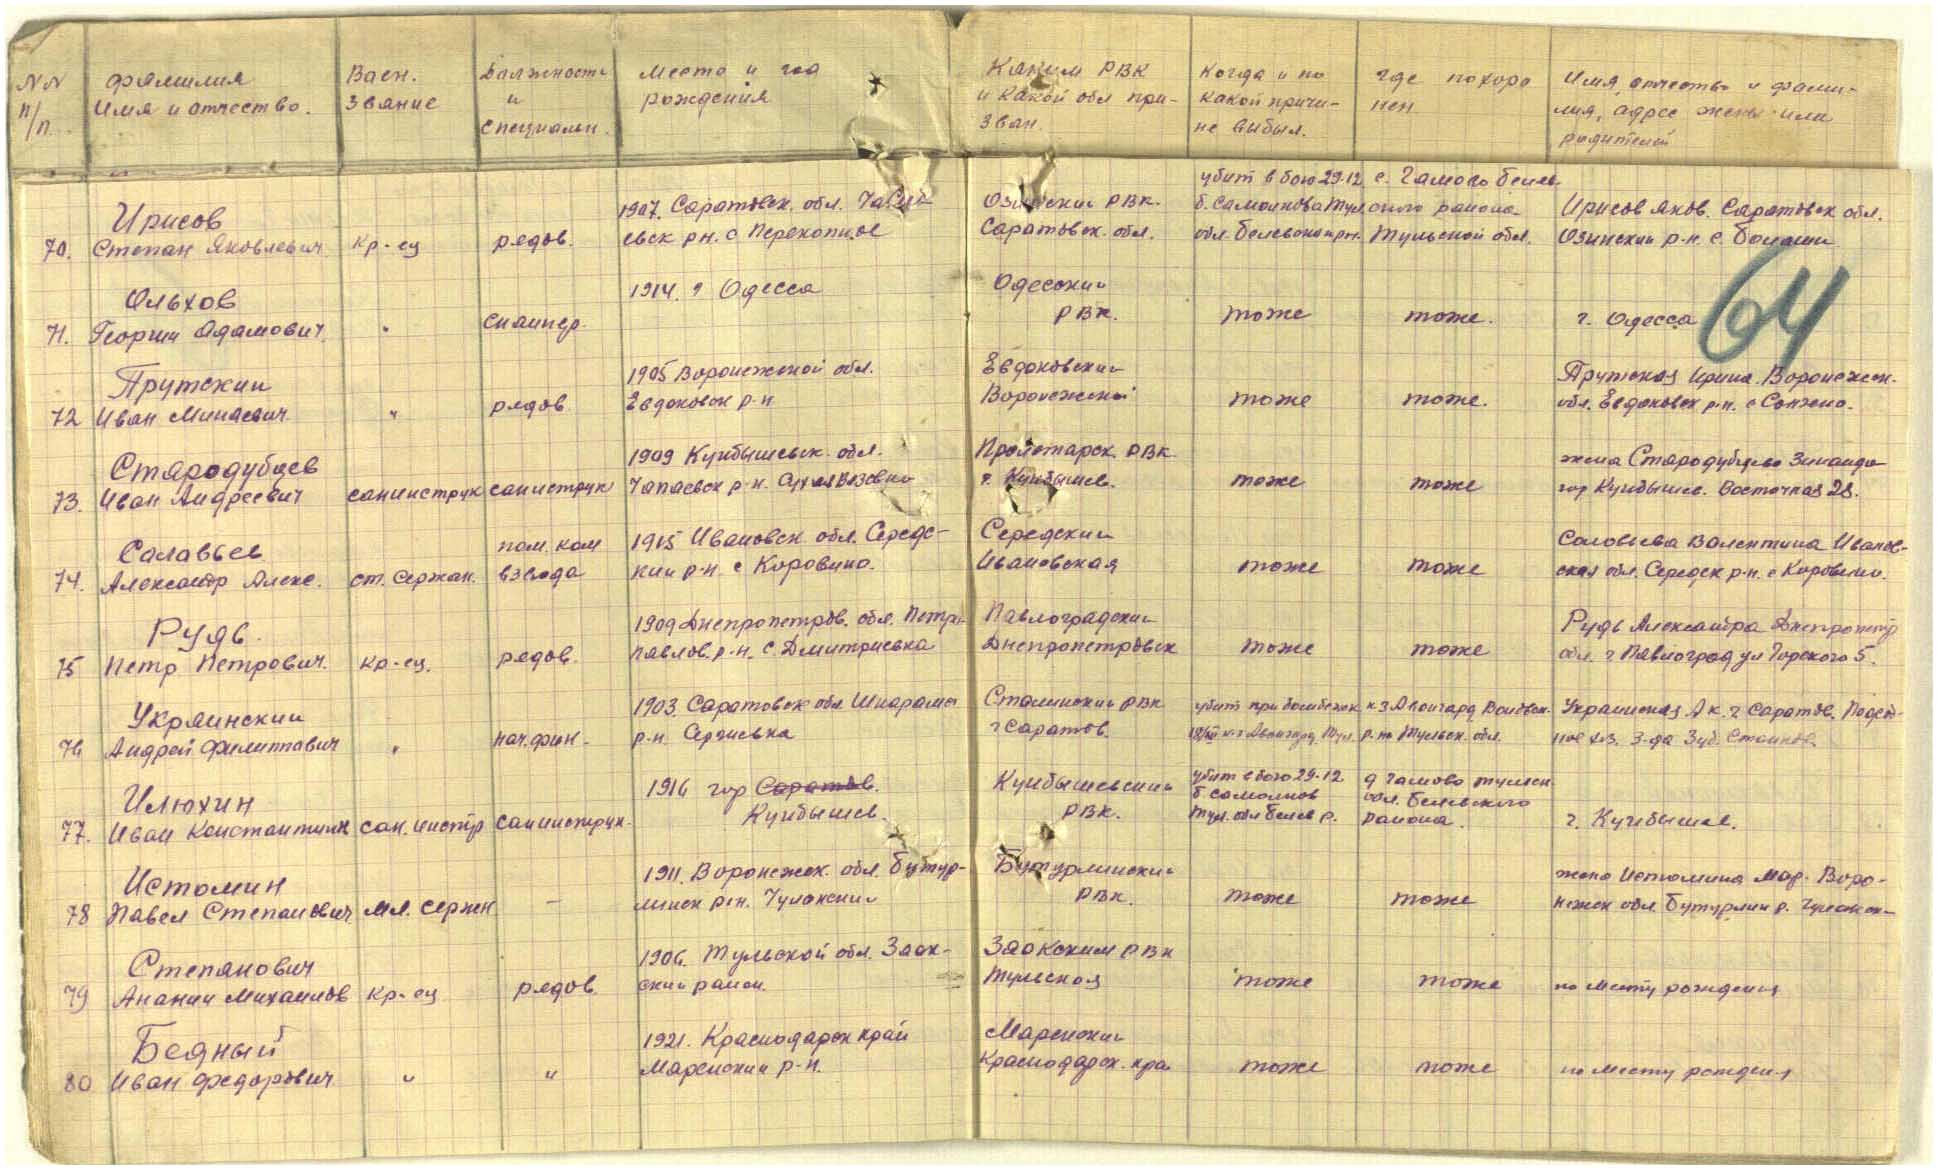 NN п/п
Фамилия Имя и отчество.
Воен. звание
Должность и специальн.
Место и год рождения
Каким РВК и какой обл призван.
Когда и по какой причине выбыл.
где похоронен
Имя, отчество и фамилия, адрес жены или родителей
70. Ирисов
Степан Яковлевич
кр-ец
рядов.
1907. Саратовск. обл.
евск рн. с Перекопное
Озинский РВК.
Саратовск. обл.
убит в бою 29.12
обл. Белевского рн.
с.
ского района
Тульской обл.
Ирисов Яков. Саратовск обл.
Озинский р-н. с.
64
71. Ольхов
Георгий Адамович.
"
снайпер.
1914. г Одесса
Одесский
РВК.
тоже
тоже.
г. Одесса
72 Прутский
Иван Минаевич.
"
рядов
1905 Воронежской обл.
Евдоковск р-н
Евдоковский
Воронежской
тоже
тоже.
Прутская Ирина. Воронежск.
обл. Евдоковск р-н. с
73. Стародубцев
Иван Андреевич
санинструк
санинструк
1909 Куйбышевск. обл.
Чапаевск р-н.
Пролетарск. РВК
г. Куйбышев.
тоже
тоже
жена Стародубцева Зинаида
гор Куйбышев. Восточная 28.
74. Салавьев
Александр Алекс.
ст. Сержан.
пом. ком
взвода
1915 Ивановск обл. Середс-
кий р-н. с Коровино.
Середский
Ивановская
тоже
тоже
Соловьева Валентина Иванов-
ская обл. Середск р-н. с Коровино.
75 Рудь.
Петр Петрович.
кр-ец.
рядов.
1909 Днепропетров. обл. Петро-
павлов. р-н. с Дмитриевка
Павлоградский
Днепропетровск
тоже
тоже
Рудь Александра Днепропетр
обл. г Павлоград ул Горского 5.
76 Украинский
Андрей Филиппович
"
нач. фин.
1903. Саратовск обл
р-н. Сергиевка
Сталинский РВК
г Саратов.
убит при бомбежке
к-з Авангард Тул.
к-з Авангард
р-на Тульск. обл.
Украинская А к. г Саратов.
77. Илюхин
Иван Константинов
сан. инстр
санинструк.
1916 гор Саратов.
Куйбышев.
Куйбышевский
РВК.
убит в бою 29-12
Тул. обл Белев р.
д Чамово тульск.
обл. Белевского
района.
г. Куйбышев.
78 Истомин
Павел Степанович
мл. сержен
—
1911. Воронежск. обл. Бутур-
линск р-н.
Бутурлинский
РВК.
тоже
тоже
жена Истомина Мар. Воро-
нежск обл. Бутурлин р.
79 Степанович
Ананий Михайлов
кр-ец
рядов.
1906. Тульской обл. Заок-
ский район.
Заокским РВК
Тульская
тоже
тоже
по месту рождения
80 Бедный
Иван Федорович
"
"
1921. Краснодарск край
Марснский р-н.
Марснский
Краснодарск. кра
тоже
тоже
по месту рождения